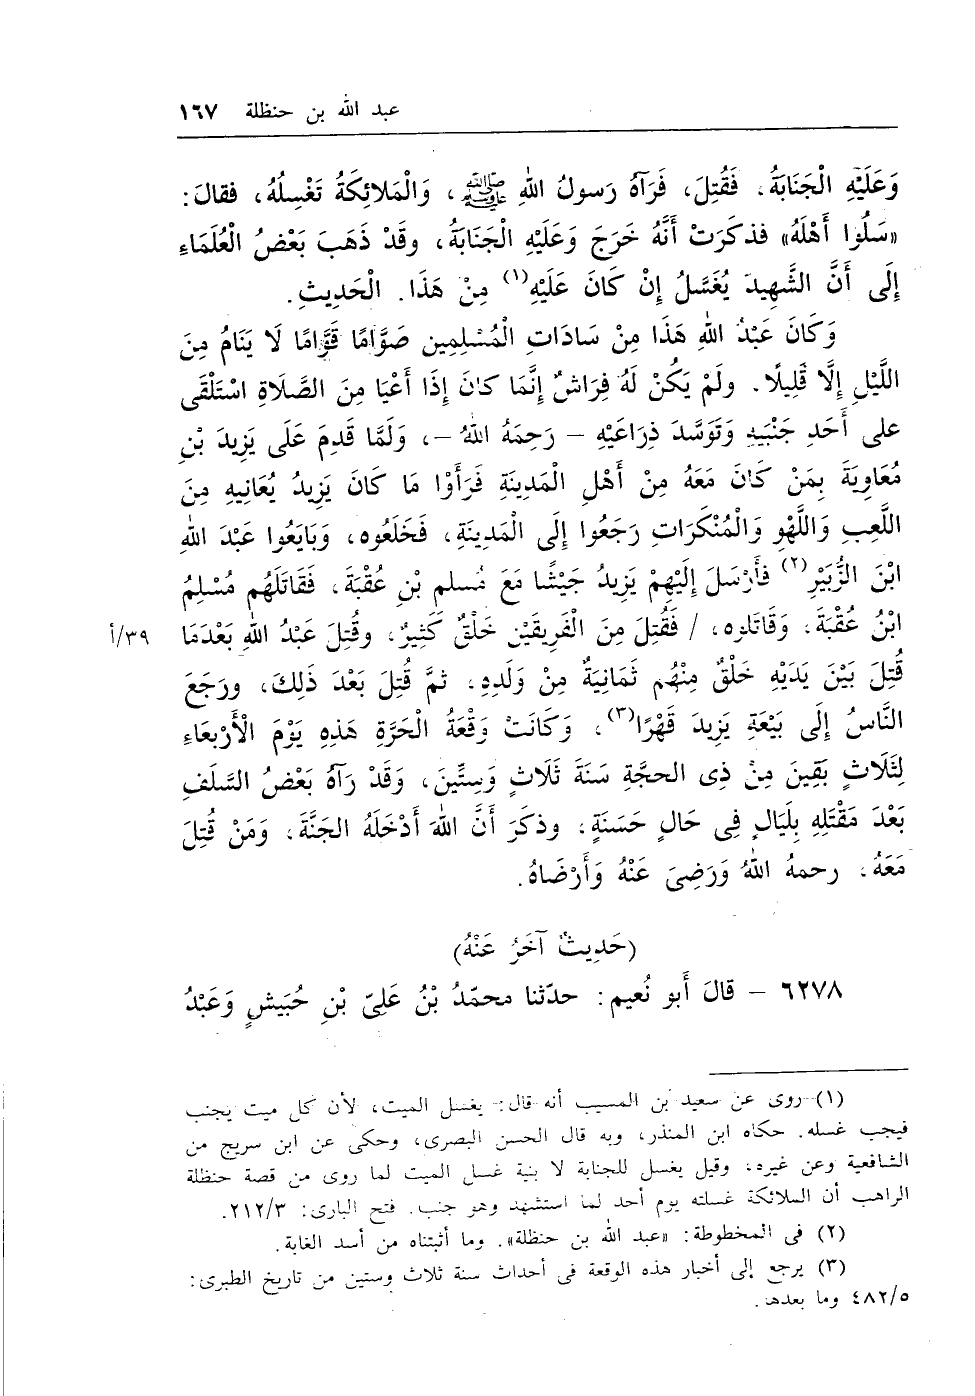 عبد الله بن حنظلة ١٦٧
وَعَلَيْهِ الْجَنَابَةُ، فَقُتِلَ، فَرَآهُ رَسولُ اللهِ ﷺ، وَالْمَلائِكَةُ تَغْسِلُهُ، فقالَ:
«سَلُوا أَهْلَهُ» فذكَرَتْ أَنَّهُ خَرَجَ وَعَلَيْهِ الْجَنَابَةُ، وقَدْ ذَهَبَ بَعْضُ الْعُلَمَاءِ
إِلَى أَنَّ الشَّهِيدَ يُغَسَّلُ إِنْ كَانَ عَلَيْهِ(١) مِنْ هَذَا. الْحَدِيثِ.
وَكَانَ عَبْدُ اللهِ هَذَا مِنْ سَادَاتِ الْمُسْلِمِين صَوَّامًا قَوَّامًا لَا يَنَامُ مِنَ
اللَّيْلِ إِلَّا قَلِيلًا. ولَمْ يَكُنْ لَهُ فِرَاشٌ إِنَّمَا كانَ إِذَا أَعْيَا مِنَ الصَّلَاةِ اسْتَلْقَى
على أَحَدِ جَنْبَيهِ وَتَوَسَّدَ ذِرَاعَيْهِ – رَحِمَهُ اللهُ –، وَلَمَّا قَدِمَ عَلَى يَزِيدَ بْنِ
مُعَاوِيَةَ بِمَنْ كَانَ مَعَهُ مِنْ أَهْلِ الْمَدِينَةِ فَرَأَوْا مَا كَانَ يَزِيدُ يُعَانِيهِ مِنَ
اللَّعِبِ وَاللَّهْوِ وَالْمُنْكَرَاتِ رَجَعُوا إِلَى الْمَدِينَةِ، فَخَلَعُوه، وَبَايَعُوا عَبْدَ اللهِ
ابْنَ الزُّبَيْرِ(٢) فأَرْسَلَ إِلَيْهِمْ يَزِيدُ جَيْشًا مَعَ مُسلم بْنِ عُقْبَةَ، فَقَاتَلَهُم مُسْلِمُ
ابْنُ عُقْبَةَ، وَقَاتَلوه، / فَقُتِلَ مِنَ الْفَرِيقَيْنِ خَلْقٌ كَثِيرٌ، وقُتِلَ عَبْدُ اللهِ بَعْدَمَا
٣٩/أ
قُتِلَ بَيْنَ يَدَيْهِ خَلْقٌ مِنْهُم ثَمَانِيَةٌ مِنْ وَلَدِهِ، ثمَّ قُتِلَ بَعْدَ ذَلِكَ، ورَجَعَ
النَّاسُ إِلَى بَيْعَةِ يَزِيدَ قَهْرًا(٣)، وَكَانَتْ وَقْعَةُ الْحَرَّةِ هَذِهِ يَوْمَ الْأَرْبَعَاءِ
لِثَلَاثٍ بَقِينَ مِنْ ذِى الحجَّةِ سَنَةَ ثَلَاثٍ وَسِتِّينَ، وَقَدْ رَآهُ بَعْضُ السَّلَفِ
بَعْدَ مَقْتَلِهِ بِلَيَالٍ فِى حَالٍ حَسَنَةٍ، وذكَرَ أَنَّ اللهَ أَدْخَلَهُ الجَنَّةَ، وَمَنْ قُتِلَ
مَعَهُ، رحمهُ اللهُ وَرَضِىَ عَنْهُ وَأَرْضَاهُ.
(حَدِيثٌ آخَرُ عَنْهُ)
٦٢٧٨ – قالَ أَبو نُعيم: حدّثنا محمّدُ بْنُ عَلِىّ بْنِ حُبَيشٍ وَعَبْدُ
(١) روى عن سعيد بن المسيب أنه قال: يغسل الميت، لأن كل ميت يجنب
فيجب غسله. حكاه ابن المنذر، وبه قال الحسن البصرى، وحكى عن ابن سريج من
الشافعية وعن غيره، وقيل يغسل للجنابة لا بنية غسل الميت لما روى من قصة حنظلة
الراهب أن الملائكة غسلته يوم أحد لما استشهد وهو جنب. فتح البارى: ٢١٢/٣.
(٢) فى المخطوطة: «عبد الله بن حنظلة». وما أثبتناه من أسد الغابة.
(٣) يرجع إلى أخبار هذه الوقعة فى أحداث سنة ثلاث وستين من تاريخ الطبرى:
٤٨٢/٥ وما بعدها.